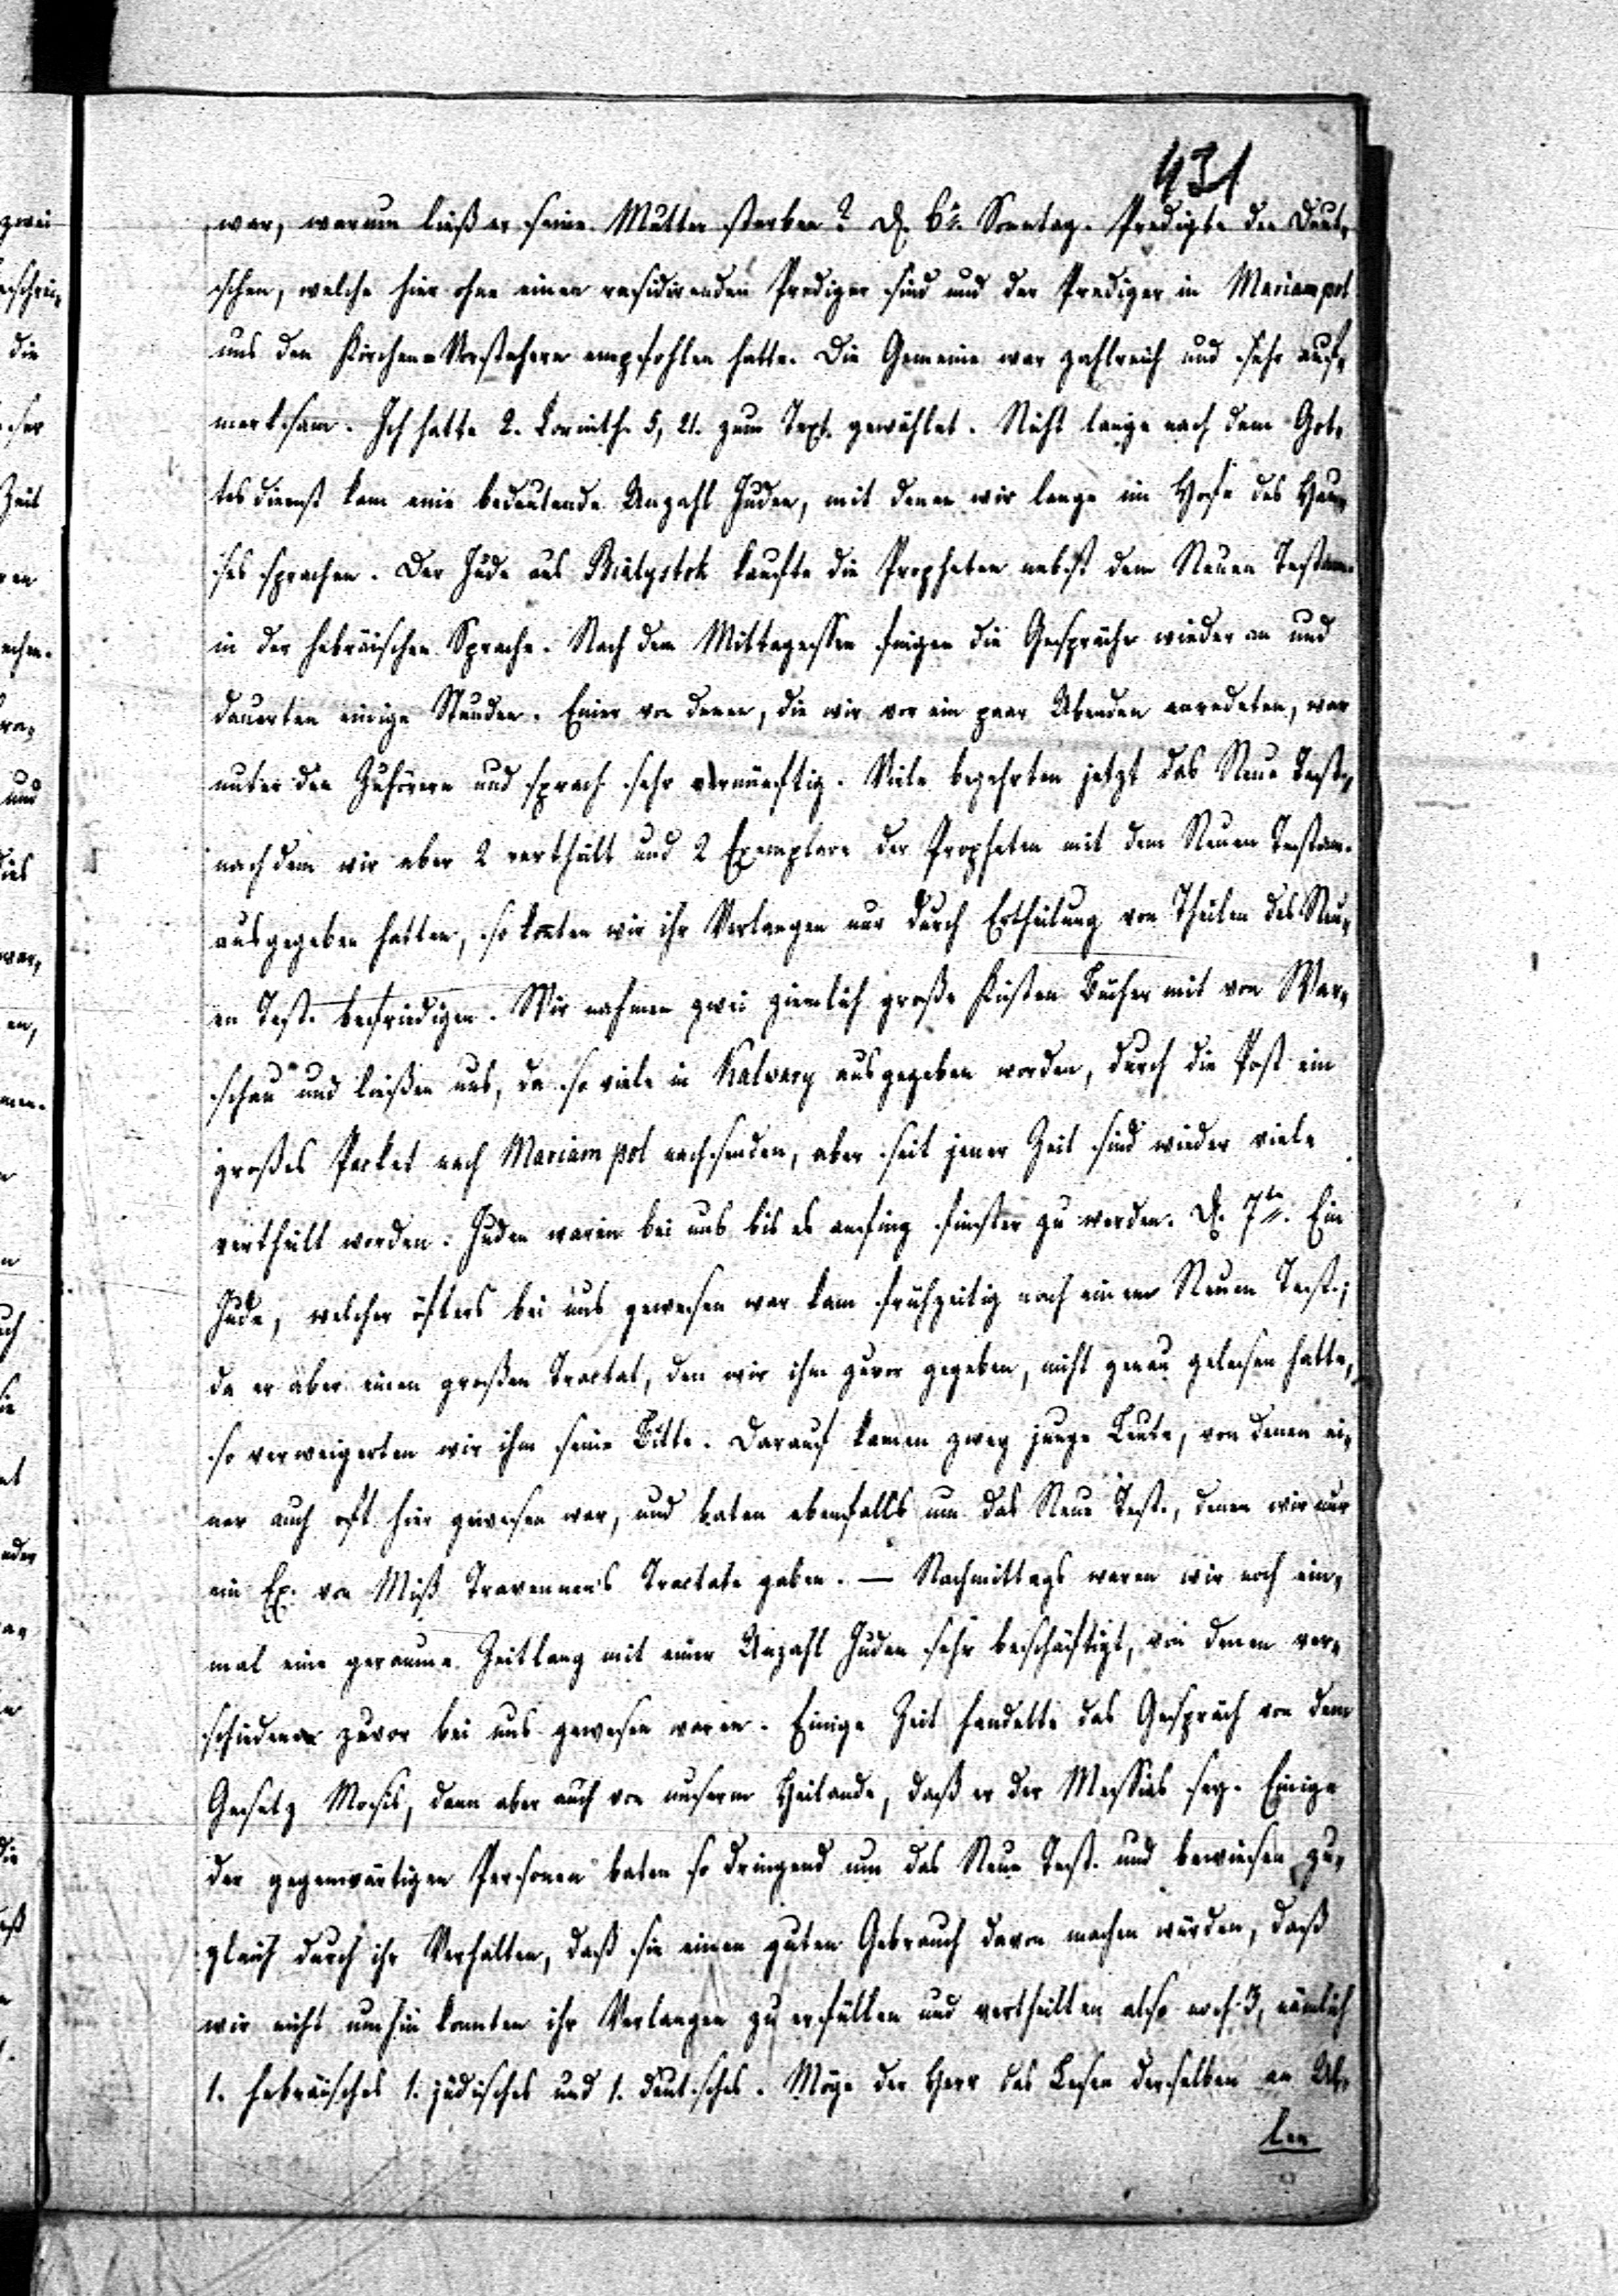 431
war, warum ließ er seine Mutter sterben? D. 6te. Sonntag. Predigte den Deut,
schen, welche hier ohne einen residirenden Prediger sind und der Prediger in Mariampol
uns den Kirchen-Vorstehern empfohlen hatte. Die Gemeine war zahlreich und sehr auf,
merksam. Ich hatte 2. Corinth. 5, 21. zum Text gewählet. Nicht lange nach dem Got,
tesdienst kam eine bedeutende Anzahl Juden, mit denen wir lange im Hofe des Hau,
ses sprachen. Der Jude aus Bialystok kaufte die Propheten nebst dem Neuen Testam.
in der hebräischen Sprache. Nach dem Mittagessen fingen die Gespräche wieder an und
dauerten einige Stunden. Einer von denen, die wir vor ein paar Abenden anredeten, war
unter den Zuhörern und sprach sehr vernünftig. Viele begehrten jetzt das Neue Test.,
nachdem wir aber 2 vertheilt und 2 Exemplare der Propheten mit dem Neuen Testam.
ausgegeben hatten, so konten wir ihr Verlangen nur durch Ertheilung von Theilen des Neu,
en Test. befriedigen. Wir nahmen zwei ziemlich große Kisten Bücher mit von War,
schau und ließen uns, da so viele in Kalwary ausgegeben worden, durch die Post ein
großes Packet nach Mariampol nachsenden, aber seit jener Zeit sind wieder viele
vertheilt worden. Juden waren bei uns bis es anfing finster zu werden. D. 7te. Ein
Jude, welcher öfters bei uns gewesen war kam frühzeitig nach einem Neuen Test.;
da er aber einen großen Tractat, den wir ihm zuvor gegeben, nicht genau gelesen hatte,
so verweigerten wir ihm seine Bitte. Darauf kamen zwey junge Leute, von denen ei,
ner auch oft hier gewesen war, und baten ebenfalls um das Neue Test., denen wir nur
ein Ex. von Miß Tractate gaben. — Nachmittags waren wir noch ein,
mal eine geraume Zeitlang mit einer Anzahl Juden sehr beschäftigt, von denen ver,
schiedene zuvor bei uns gewesen waren. Einige Zeit handelte das Gespräch von dem
Gesetz Mosis, dann aber auch von unserm Heilande, daß er der Messias sey. Einige
der gegenwärtigen Personen baten so dringend um das Neue Test. und bewiesen zu,
gleich durch ihr Verhalten, daß sie einen guten Gebrauch davon machen würden, daß
wir nicht umhin konnten ihr Verlangen zu erfüllen und vertheilten also noch 3, nämlich
1. hebräisches 1. jüdisches und 1. deutsches. Möge der Herr das Lesen derselben an Al,
len